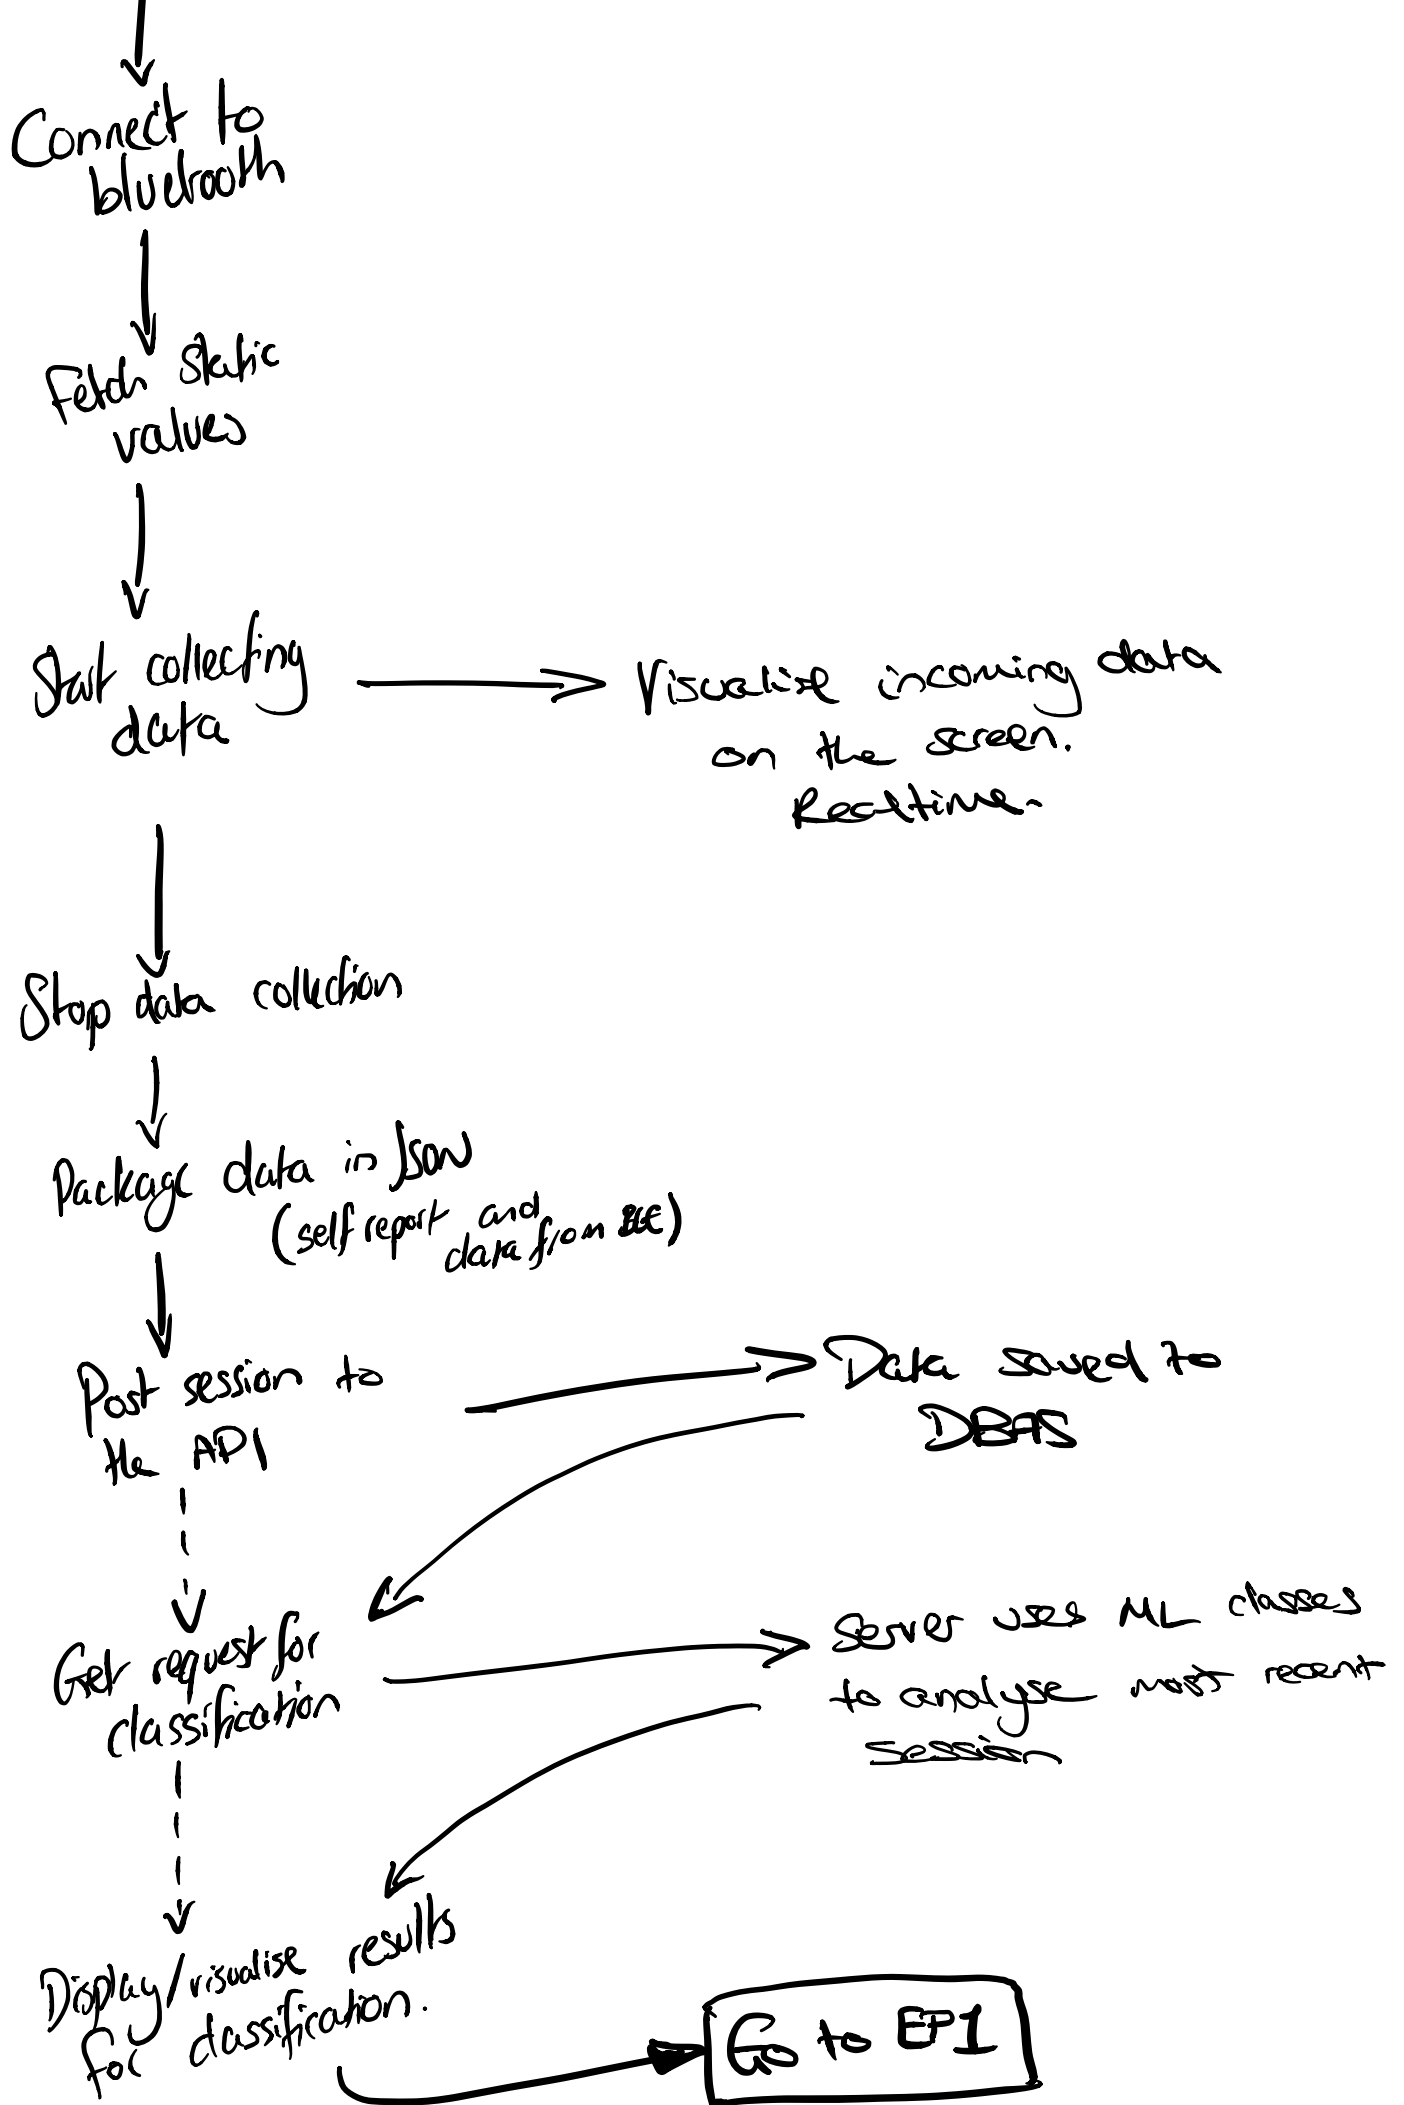 Connect to
bluetooth
Fetch static
values
Start collecting
data
Visualise incoming data
on the screen.
Realtime.
Stop data collection
Package data in Json
(self report and
data from )
Post session to
the API
Data saved to
DBAS
Get request for
classification
Server uses ML classes
to analyse most recent
session
Display/visualise results
for classification.
Go to EP1